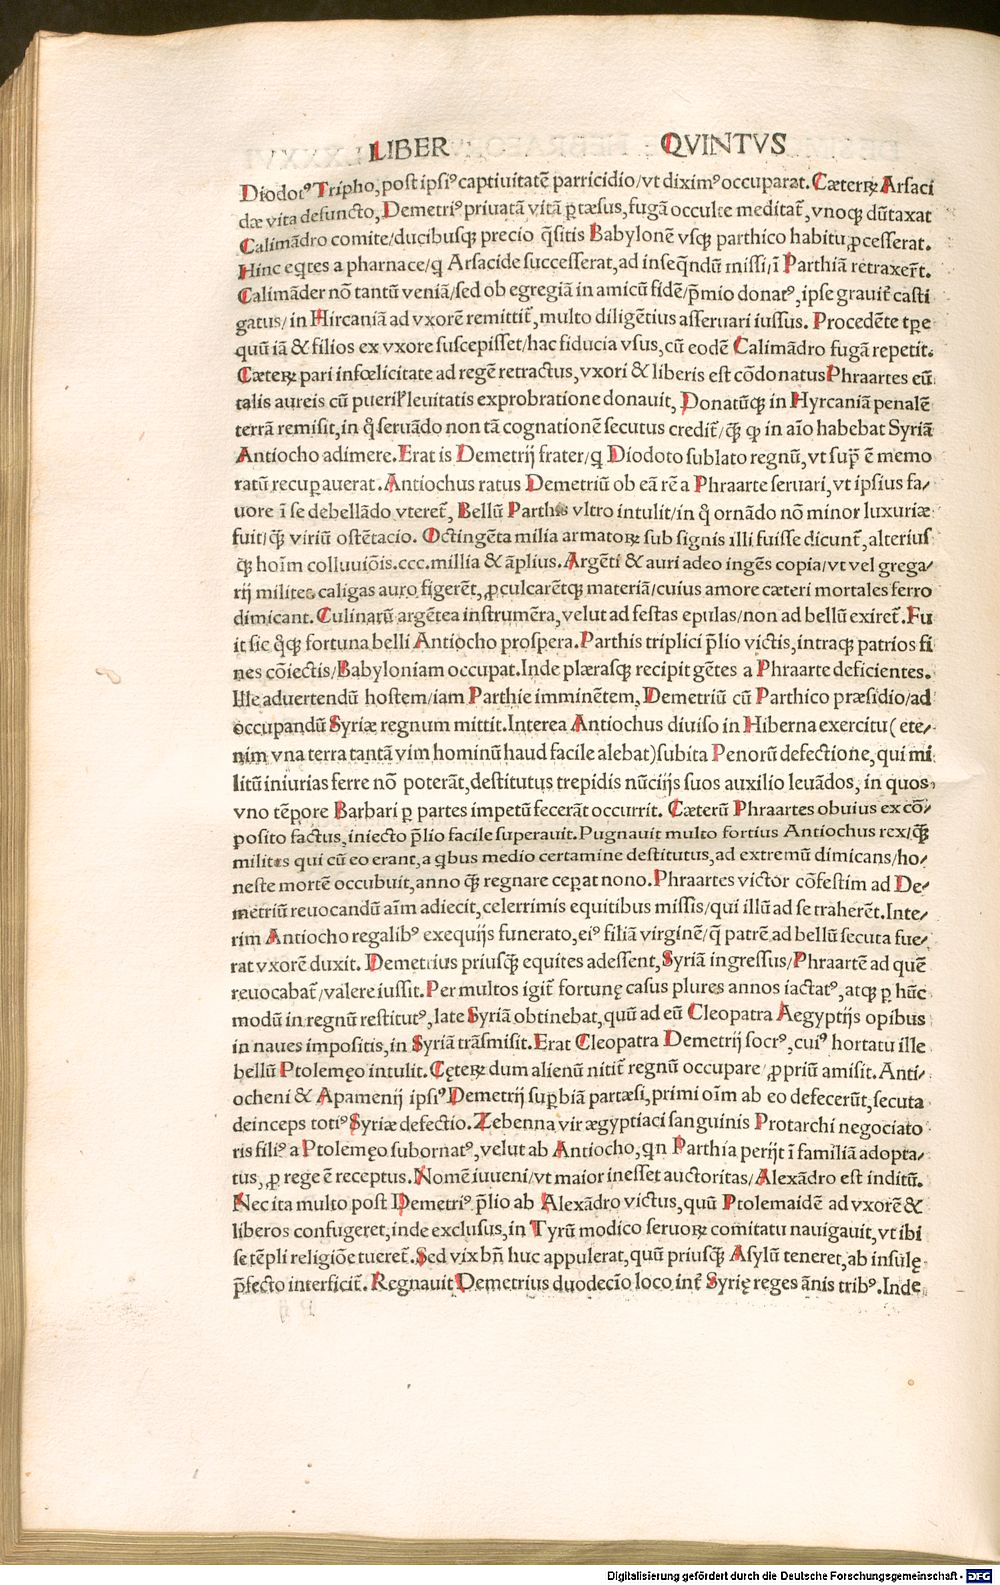 LIBER QVINTVS
Diodotꝰ Tripho, post ipsiꝰ captiuitatē parricidio/vt diximꝰ occuparat. Cæteꝝ Arsaci
dæ vita defuncto, Demetriꝰ priuatā vitā ꝑtæsus, fugā occulte meditat̄, vnoqꝫ dūtaxat
Calimādro comite/ducibusqꝫ precio q̄sitis Babylonē vsqꝫ parthico habitu, ꝓcesserat.
Hinc eqtes a pharnace/q Arsacide successerat, ad inseq̄ndū missi/ī Parthiā retraxer̄t.
Calimāder nō tantū veniā/sed ob egregiā in amicū fidē/p̄mio donatꝰ, ipse grauit̄ casti
gatus/in Hircaniā ad vxorē remittit̄, multo diligētius asseruari iussus. Procedēte tꝑe
quū iā & filios ex vxore suscepisset/hac fiducia vsus, cū eodē Calimādro fugā repetit.
Cæteꝝ pari infœlicitate ad regē retractus, vxori & liberis est cōdonatus Phraartes eū
talis aureis cū puerił leuitatis exprobratione donauit, Donatūqꝫ in Hyrcaniā penalē
terrā remisit, in q̄ seruādo non tā cognationē secutus credit̄/q̄ꝫ ꝙ in aīo habebat Syriā
Antiocho adimere. Erat is Demetrij frater/q Diodoto sublato regnū, vt sup̄ ē memo
ratū recuꝑauerat. Antiochus ratus Demetriū ob eā rē a Phraarte seruari, vt ipsius fa/
uore ī se debellādo vteret̄, Bellū Parthis vltro intulit/in q̄ ornādo nō minor luxuriæ
fuit/q̄ꝫ viriū ostētacio. Octingēta milia armatoꝝ sub signis illi fuisse dicunt̄, alterius
q̄ꝫ hoīm colluuiōis.ccc.millia & āplius. Argēti & auri adeo ingēs copia/vt vel grega/
rij milites caligas auro figerēt, ꝓculcarētqꝫ materiā/cuius amore cæteri mortales ferro
dimicant. Culinarū argētea instrumēta, velut ad festas epulas/non ad bellū exiret̄. Fu
it sic q̄qꝫ fortuna belli Antiocho prospera. Parthis triplici p̄lio victis, intraqꝫ patrios fi
nes cōiectis/Babyloniam occupat. Inde plærasqꝫ recipit gētes a Phraarte deficientes.
Ille aduertendū hostem/iam Parthie imminētem, Demetriū cū Parthico præsidio/ad
occupandū Syriæ regnum mittit. Interea Antiochus diuiso in Hiberna exercitu( ete/
nim vna terra tantā vim hominū haud facile alebat)subita Penorū defectione, qui mi
litū iniurias ferre nō poterāt, destitutus trepidis nūcijs suos auxilio leuādos, in quos
vno tēpore Barbari ꝑ partes impetū fecerāt occurrit. Cæterū Phraartes obuius ex cō/
posito factus, iniecto p̄lio facile superauit. Pugnauit multo fortius Antiochus rex/q̄ꝫ
milites qui cū eo erant, a qbus medio certamine destitutus, ad extremū dimicans/ho/
neste mortē occubuit, anno q̄ꝫ regnare ceꝑat nono. Phraartes victor cōfestim ad De/
metriū reuocandū aīm adiecit, celerrimis equitibus missis/qui illū ad se traherēt. Inte/
rim Antiocho regalibꝰ exequijs funerato, eiꝰ filiā virginē/q̄ patrē ad bellū secuta fue/
rat vxorē duxit. Demetrius priusq̄ꝫ equites adessent, Syriā ingressus/Phraartē ad quē
reuocabat̄/valere iussit. Per multos igit̄ fortunę casus plures annos iactatꝰ, atqꝫ ꝑ hūc
modū in regnū restitutꝰ, late Syriā obtinebat, quū ad eū Cleopatra Aegyptijs opibus
in naues impositis, in Syriā trāsmisit. Erat Cleopatra Demetrij socrꝰ, cuiꝰ hortatu ille
bellū Ptolemęo intulit. Cęteꝝ dum alienū nitit̄ regnū occupare/ꝓpriū amisit. Anti/
ocheni & Apamenij ipsiꝰ Demetrij suꝑbiā partæsi, primi oīm ab eo defecerūt, secuta
deinceps totiꝰ Syriæ defectio. Zebenna vir ægyptiaci sanguinis Protarchi negociato
ris filiꝰ a Ptolemęo subornatꝰ, velut ab Antiocho, qn Parthia perijt ī familiā adopta/
tus, ꝓ rege ē receptus. Nomē iuueni/vt maior inesset auctoritas/Alexādro est inditū.
Nec ita multo post Demetriꝰ p̄lio ab Alexādro victus, quū Ptolemaidē ad vxorē &
liberos confugeret, inde exclusus, in Tyrū modico seruoꝝ comitatu nauigauit, vt ibi
se tēpli religiōe tueret̄. Sed vix bn̄ huc appulerat, quū priusq̄ꝫ Asylū teneret, ab insulę
p̄fecto interficit̄. Regnauit Demetrius duodecīo loco int̄ Syrię reges ānis tribꝰ. Inde
Digitalisierung gefördert durch die Deutsche Forschungsgemeinschaft - DFG